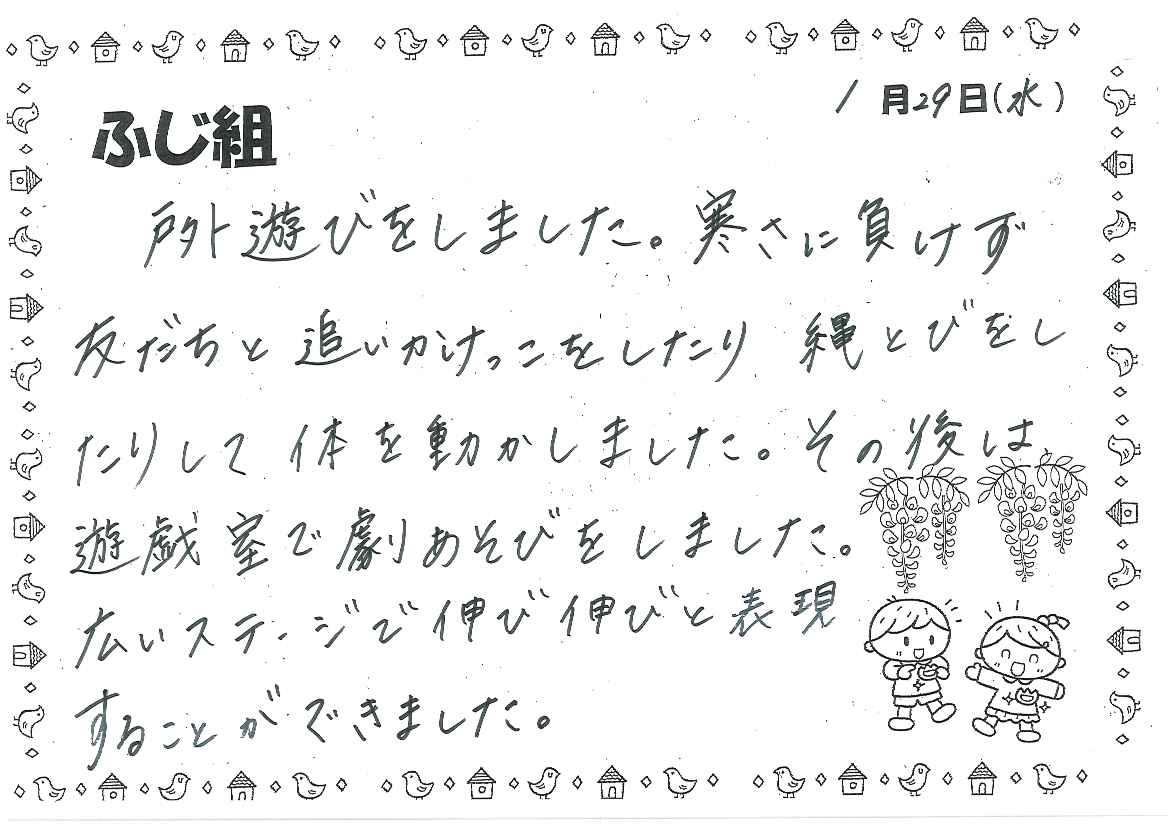 1月29日(水)
ふじ組
戸外遊びをしました。寒さに負けず
友だちと追いかけっこをしたり縄とびをし
たりして体を動かしました。その後は
遊戯室で劇あそびをしました。
広いステージで伸び伸びと表現
することができました。